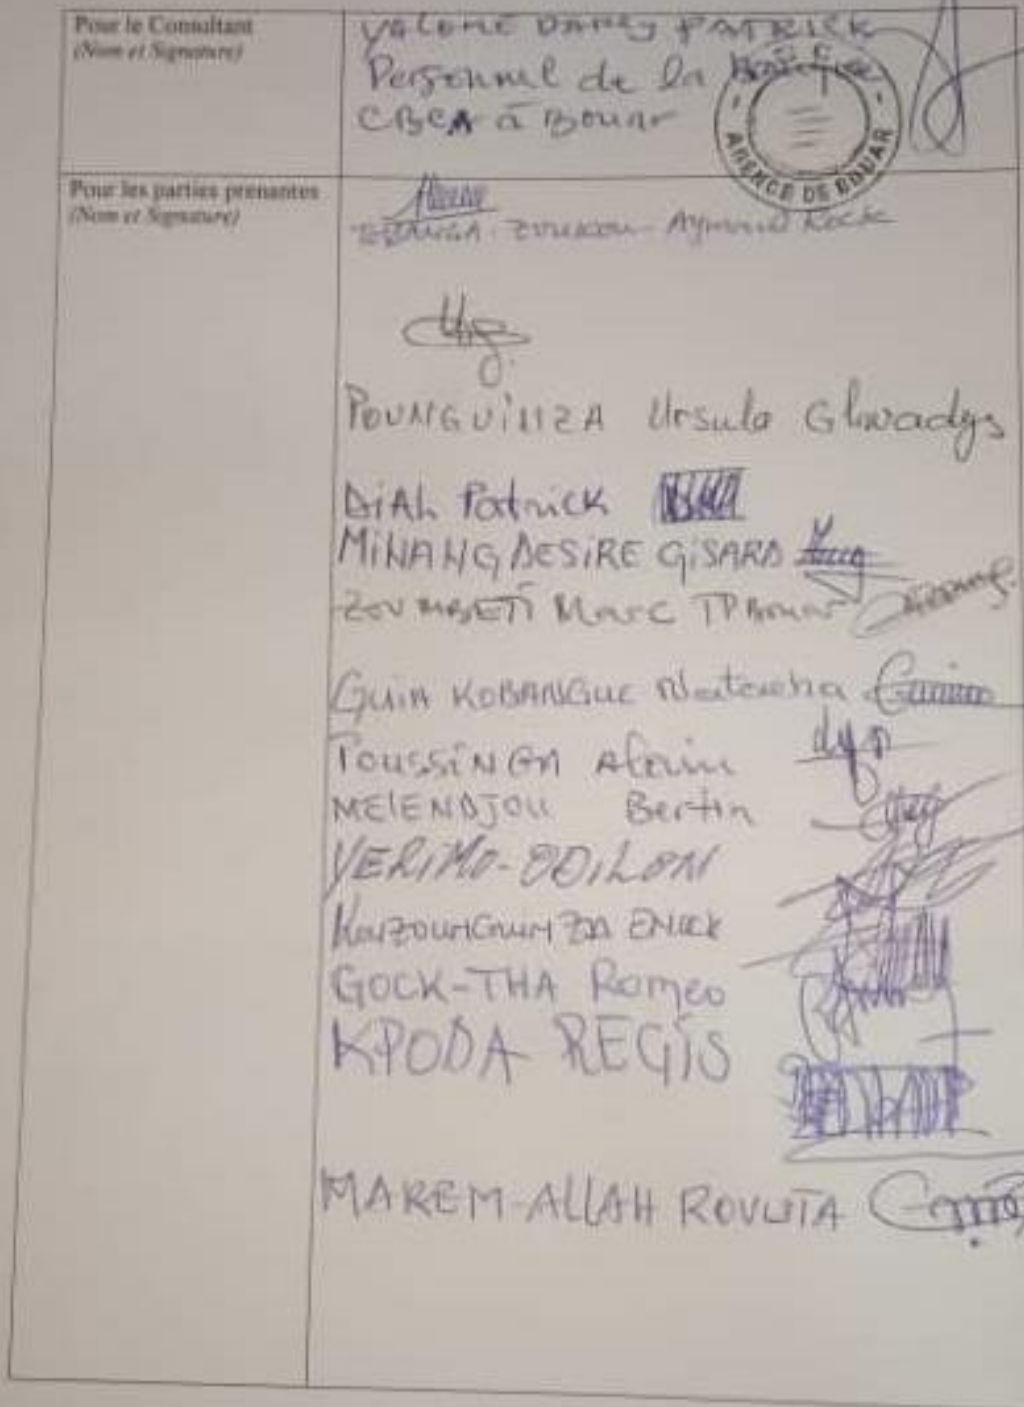 Pour le Consultant
(Nom et Signature)
YALOME DANCY PATRICK
Personnel de la
CBCA à Bouar
AGENCE DE BOUAR
Pour les parties prenantes
(Nom et Signature)
Aymard Rock
POUNGUINZA Ursula Glwadys
DIAH Patrick
MINANG DESIRE GISARD
ZOUMBETI Marc TP Bouar
GUIA KOBANGUE Natacha
TOUSSINGA Alain
MEIENDJOU Bertin
YERIMO-ODILON
GOCK-THA Romeo
KPODA REGIS
MAREM-ALLAH